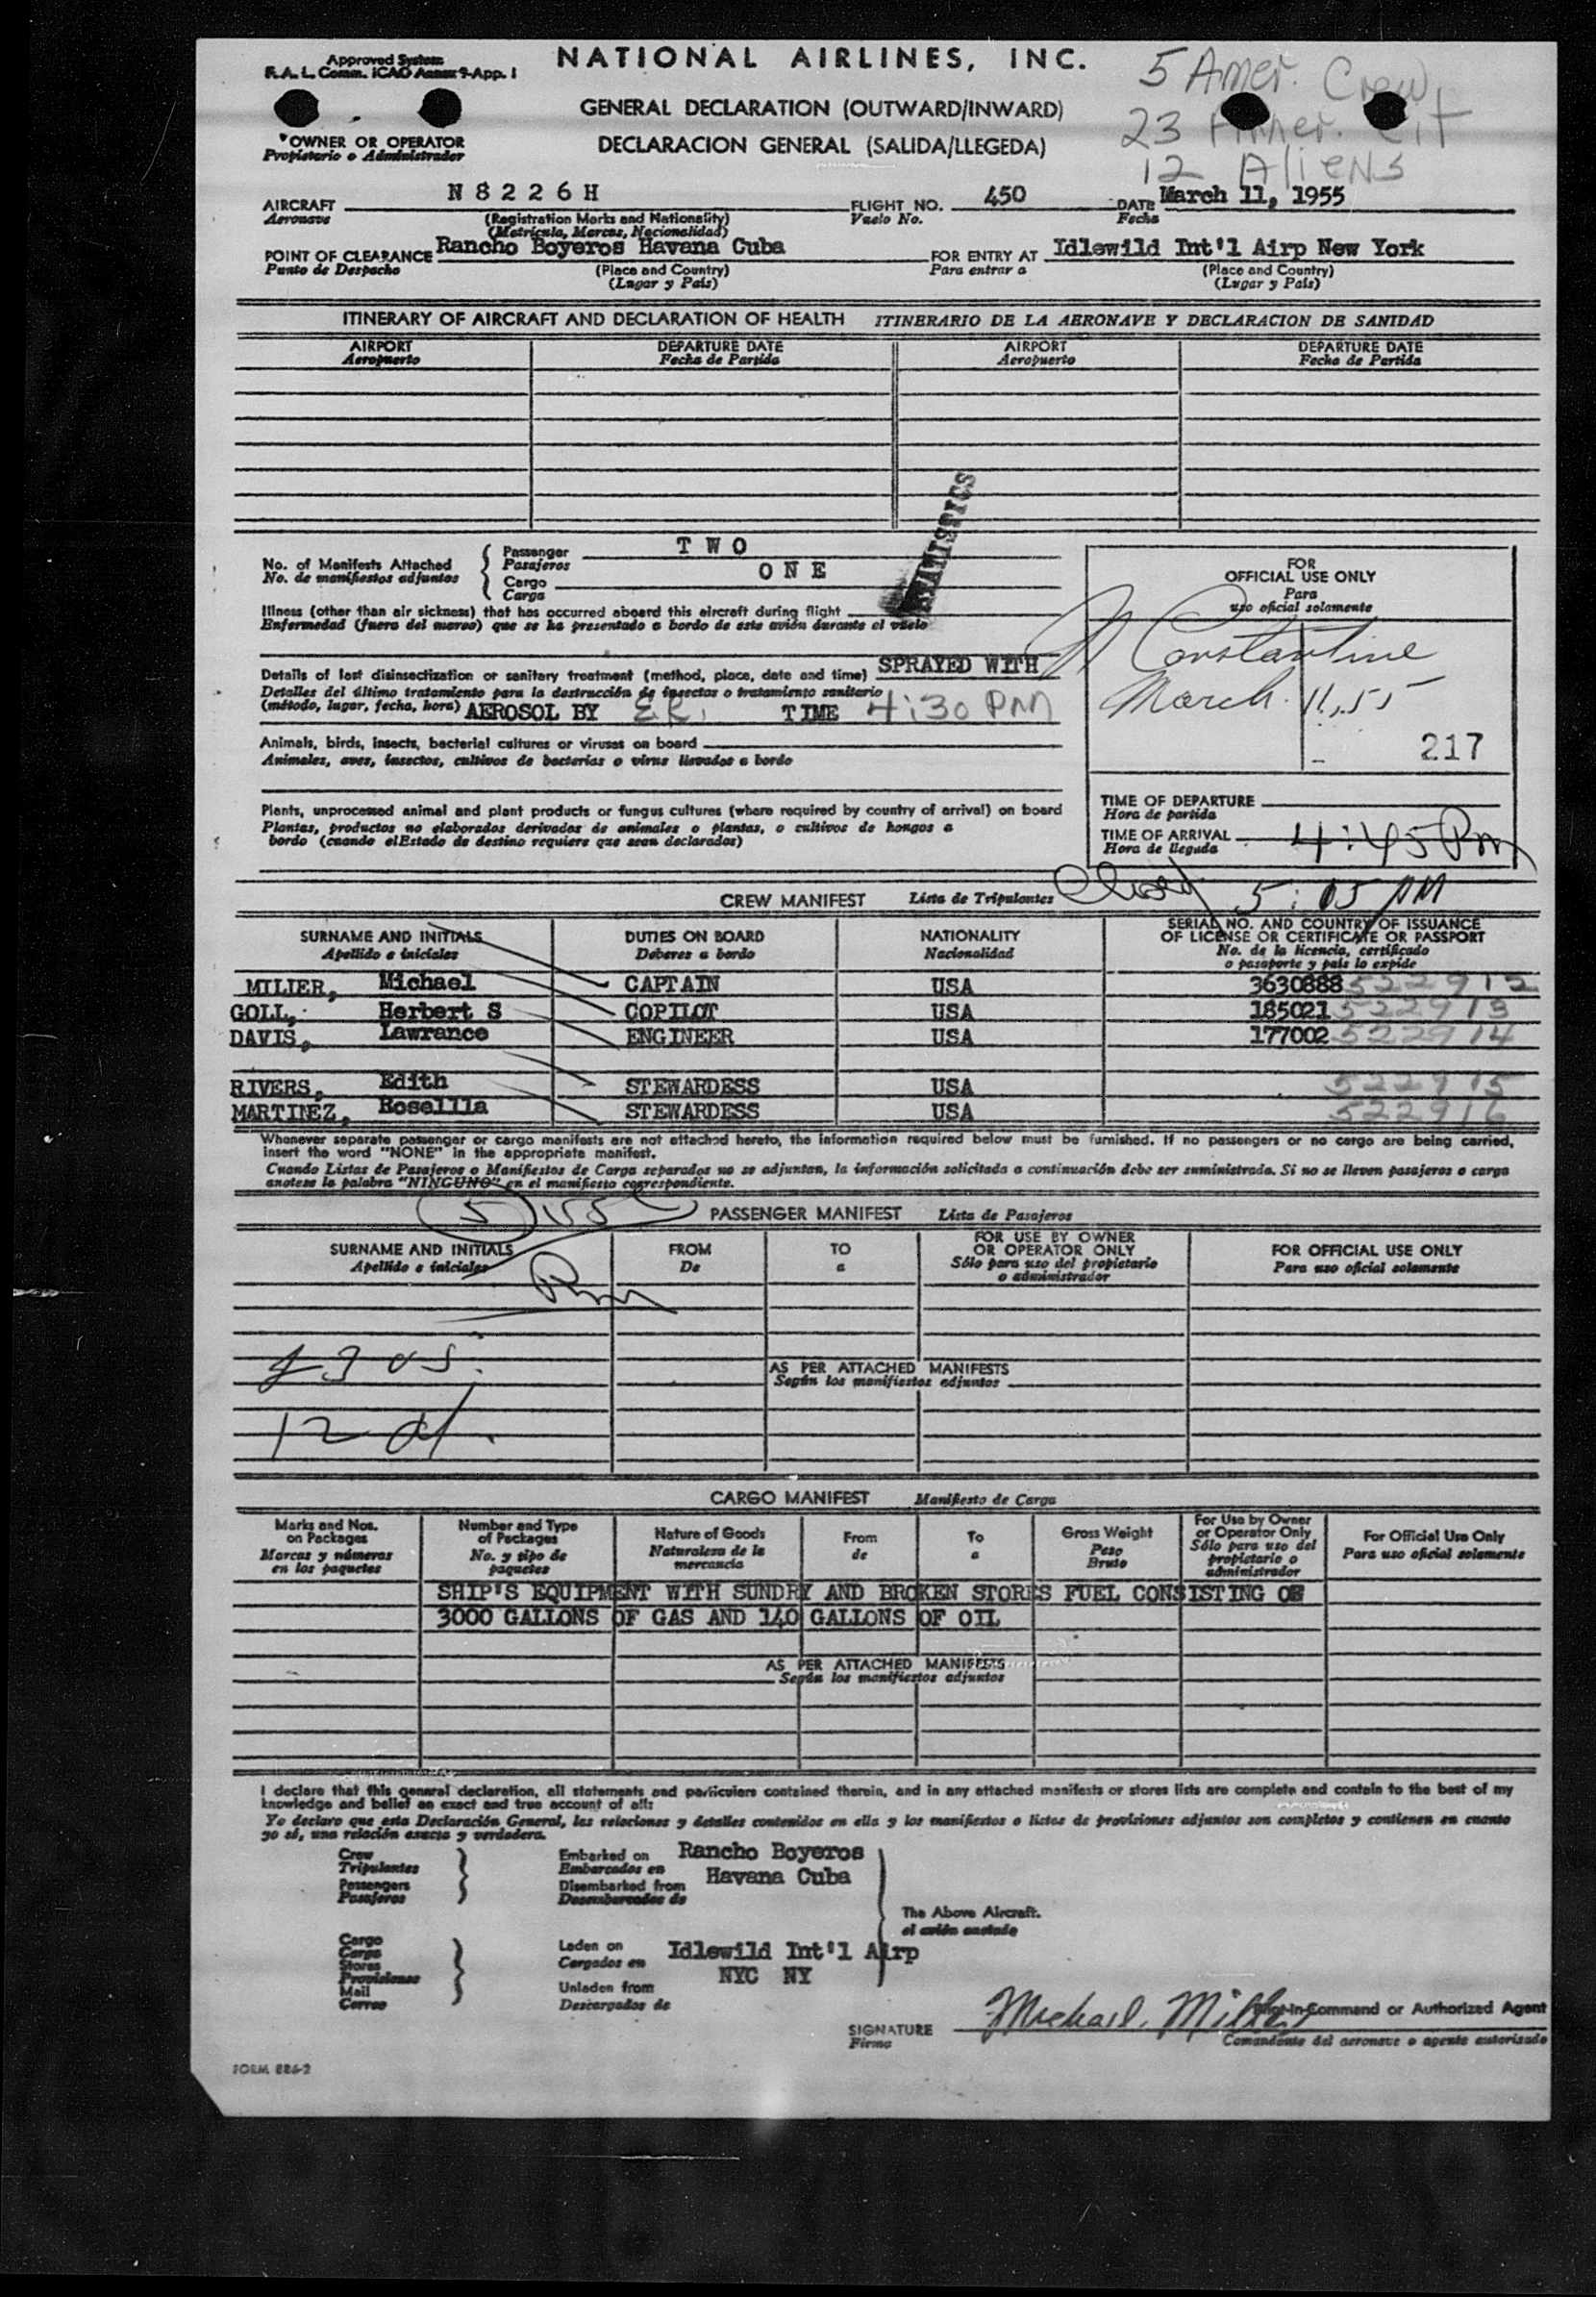 Approved System
F. A. L. Comm. ICAO Annex 9-App. 1
NATIONAL AIRLINES, INC.
5 Amer. Crew
GENERAL DECLARATION (OUTWARD/INWARD)
23 Amer. Cit
*OWNER OR OPERATOR
Propietario o Administrador
DECLARACION GENERAL (SALIDA/LLEGEDA)
12 Aliens
AIRCRAFT N 8 2 2 6 H FLIGHT NO. 450 DATE March 11, 1955
Aeronave (Registration Marks and Nationality) Vuelo No. Fecha
(Matrícula, Marcas, Nacionalidad)
POINT OF CLEARANCE Rancho Boyeros Havana Cuba FOR ENTRY AT Idlewild Int'l Airp New York
Punto de Despacho (Place and Country) Para entrar a (Place and Country)
(Lugar y País) (Lugar y País)
ITINERARY OF AIRCRAFT AND DECLARATION OF HEALTH ITINERARIO DE LA AERONAVE Y DECLARACION DE SANIDAD
AIRPORT DEPARTURE DATE AIRPORT DEPARTURE DATE
Aeropuerto Fecha de Partida Aeropuerto Fecha de Partida
STATISTICS
No. of Manifests Attached
No. de manifiestos adjuntos
Passenger T W O
Pasajeros
Cargo O N E
Carga
Illness (other than air sickness) that has occurred aboard this aircraft during flight
Enfermedad (fuera del mareo) que se ha presentado a bordo de este avión durante el vuelo
Details of last disinsectization or sanitary treatment (method, place, date and time) SPRAYED WITH
Detalles del último tratamiento para la destrucción de insectos o tratamiento sanitario
(método, lugar, fecha, hora) AEROSOL BY E.R. TIME 4:30 PM
Animals, birds, insects, bacterial cultures or viruses on board
Animales, aves, insectos, cultivos de bacterias o virus llevados a bordo
Plants, unprocessed animal and plant products or fungus cultures (where required by country of arrival) on board
Plantas, productos no elaborados derivados de animales o plantas, o cultivos de hongos a
bordo (cuando elEstado de destino requiere que sean declarados)
FOR
OFFICIAL USE ONLY
Para
uso oficial solamente
N Constantine
March 11, 55
217
TIME OF DEPARTURE
Hora de partida
TIME OF ARRIVAL 4:45 Pm
Hora de llegada
5:05 PM
CREW MANIFEST Lista de Tripulantes
SURNAME AND INITIALS DUTIES ON BOARD NATIONALITY SERIAL NO. AND COUNTRY OF ISSUANCE
OF LICENSE OR CERTIFICATE OR PASSPORT
Apellido e iniciales Deberes a bordo Nacionalidad No. de la licencia, certificado
o pasaporte y país lo expide
MILIER, Michael CAPTAIN USA 3630888 522912
GOLL, Herbert S COPILOT USA 185021 522913
DAVIS, Lawrance ENGINEER USA 177002 522914
RIVERS, Edith STEWARDESS USA 522915
MARTINEZ, Rosellla STEWARDESS USA 522916
Whenever separate passenger or cargo manifests are not attached hereto, the information required below must be furnished. If no passengers or no cargo are being carried,
insert the word "NONE" in the appropriate manifest.
Cuando Listas de Pasajeros o Manifiestos de Carga separados no se adjuntan, la información solicitada a continuación debe ser suministrada. Si no se lleven pasajeros o carga
anotese la palabra "NINGUNO" en el manifiesto correspondiente.
PASSENGER MANIFEST Lista de Pasajeros
SURNAME AND INITIALS FROM TO FOR USE BY OWNER
OR OPERATOR ONLY FOR OFFICIAL USE ONLY
Apellido e iniciales De a Sólo para uso del propietario
o administrador Para uso oficial solamente
AS PER ATTACHED MANIFESTS
Según los manifiestos adjuntos
CARGO MANIFEST Manifiesto de Carga
Marks and Nos.
on Packages
Marcas y números
en los paquetes
Number and Type
of Packages
No. y tipo de
paquetes
Nature of Goods
Naturaleza de la
mercancía
From
de
To
a
Gross Weight
Peso
Bruto
For Use by Owner
or Operator Only
Sólo para uso del
propietario o
administrador
For Official Use Only
Para uso oficial solamente
SHIP'S EQUIPMENT WITH SUNDRY AND BROKEN STORES FUEL CONSISTING OF
3000 GALLONS OF GAS AND 140 GALLONS OF OIL
AS PER ATTACHED MANIFESTS
Según los manifiestos adjuntos
I declare that this general declaration, all statements and particulars contained therein, and in any attached manifests or stores lists are complete and contain to the best of my
knowledge and belief an exact and true account of all:
Yo declaro que esta Declaración General, las relaciones y detalles contenidos en ella y los manifiestos o listas de provisiones adjuntos son completos y contienen en cuanto
yo sé, una relación exacta y verdadera.
Crew
Tripulantes
Passengers
Pasajeros
Embarked on Rancho Boyeros
Embarcados en
Disembarked from Havana Cuba
Desembarcados de
The Above Aircraft.
el avión anotado
Cargo
Carga
Stores
Provisiones
Mail
Correo
Laden on Idlewild Int'l Airp
Cargados en
NYC NY
Unladen from
Descargados de
SIGNATURE Michael Miller Pilot-in-Command or Authorized Agent
Firma Comandante del aeronave o agente autorizado
FORM 886-2